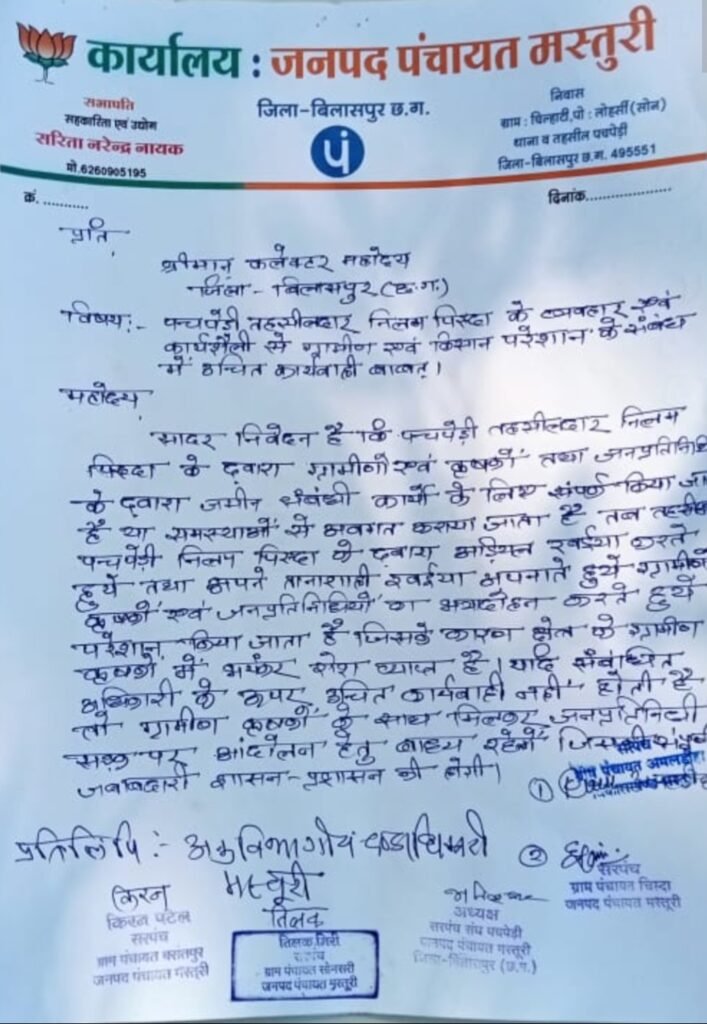 कार्यालय : जनपद पंचायत मस्तुरी
सभापति
सहकारिता एवं उद्योग
सरिता नरेन्द्र नायक
मो.6260905195
जिला-बिलासपुर छ.ग.
पं
निवास
ग्राम : चिल्हाटी,पो : लोहर्सी (सोन)
थाना व तहसील पचपेड़ी
जिला-बिलासपुर छ.ग. 495551
क्रं. ...........
दिनांक.....................
प्रति,
श्रीमान् कलेक्टर महोदय
जिला - बिलासपुर (छ.ग.)
विषय:- पचपेड़ी तहसीलदार निलम पिस्दा के व्यवहार एवं
कार्यशैली से ग्रामीण एवं किसान परेशान के संबंध
में उचित कार्यवाही बाबत्।
महोदय,
सादर निवेदन है कि पचपेड़ी तहसीलदार निलम
पिस्दा के द्वारा ग्रामीणों एवं कृषकों तथा जनप्रतिनिधि
के द्वारा जमीन संबंधी कार्यो के लिए संपर्क किया जा
है या समस्याओं से अवगत कराया जाता है तब
पचपेड़ी निलम पिस्दा के द्वारा अड़ियल रवईया करते
हुये तथा अपने तानाशाही रवईया अपनाते हुये ग्रामीण
कृषकों एवं जनप्रतिनिधियों का भयादोहन करते हुये
परेशान किया जाता है जिसके कारण क्षेत्र के ग्रामीण
कृषकों में भयंकर रोश व्याप्त है। यदि संबंधित
अधिकारी के ऊपर उचित कार्यवाही नहीं होती है
तो ग्रामीण कृषकों के साथ मिलकर जनप्रतिनिधी
सड़क पर आंदोलन हेतु बाध्य रहेगें जिसकी
जवाबदारी शासन-प्रशासन की होगी।
सरपंच
ग्राम पंचायत
①
प्रतिलिपि :- अनुविभागीय दण्डाधिकारी
मस्तूरी
②
सरपंच
ग्राम पंचायत चिस्दा
जनपद पंचायत मस्तुरी
किरन
किरन पटेल
सरपंच
ग्राम पंचायत
जनपद पंचायत मस्तुरी
तिलक
तिलक गिरी
सरपंच
ग्राम पंचायत सोनसरी
जनपद पंचायत मस्तुरी
अध्यक्ष
सरपंच संघ पचपेड़ी
जनपद पंचायत मस्तुरी
जिला-बिलासपुर (छ.ग.)